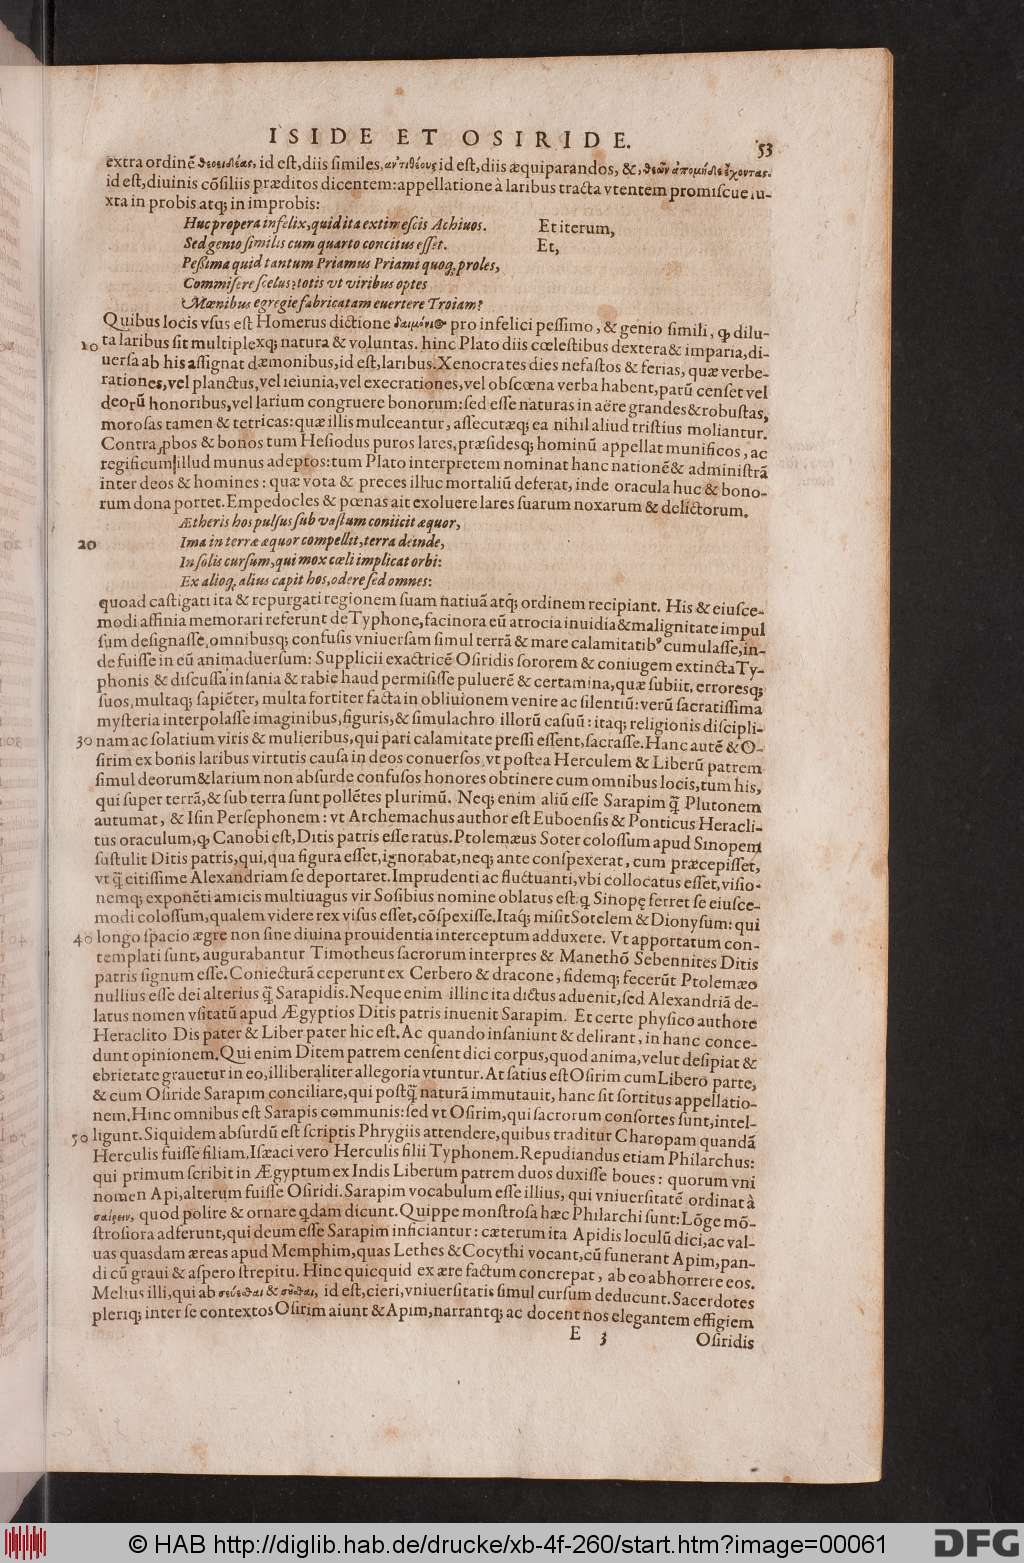 ISIDE ET OSIRIDE. 53
extra ordinẽ θεοειδέας, id eſt, diis ſimiles, ἀντιθέους id eſt, diis æquiparandos, &, θεῶν ἀπο μήδε᾽ ἔχοντας.
id eſt, diuinis cõſiliis præditos dicentem: appellatione à laribus tracta vtentem promiſcue iu-
xta in probis atq; in improbis:
Huc propera infelix, quid ita extimeſcis Achiuos. Et iterum,
Sed genio ſimilis cum quarto concitus eſſet. Et,
Peßima quid tantum Priamus Priami quoq; proles,
Commiſere ſcelus? totis vt viribus optes
Mœnibus egregie fabricatam euertere Troiam?
Quibus locis vſus eſt Homerus dictione δαιμόνιος pro infelici peſſimo, & genio ſimili, ꝙ dilu-
10 ta laribus ſit multiplexq; natura & voluntas. hinc Plato diis cœleſtibus dextera & imparia, di-
uerſa ab his aſſignat dæmonibus, id eſt, laribus. Xenocrates dies nefaſtos & ferias, quæ verbe-
rationes, vel planctus, vel ieiunia, vel execrationes, vel obſcœna verba habent, parũ cenſet vel
deorũ honoribus, vel larium congruere bonorum: ſed eſſe naturas in aëre grandes & robuſtas,
moroſas tamen & tetricas: quæ illis mulceantur, aſſecutæq; ea nihil aliud triſtius moliantur.
Contra ꝓbos & bonos tum Heſiodus puros lares, præſidesq; hominũ appellat munificos, ac
regificum illud munus adeptos: tum Plato interpretem nominat hanc nationẽ & adminiſtrã
inter deos & homines: quæ vota & preces illuc mortaliũ deferat, inde oracula huc & bono-
rum dona portet. Empedocles & pœnas ait exoluere lares ſuarum noxarum & delictorum.
Ætheris hos pulſus ſub vaſtum coniicit æquor,
20 Ima in terræ æquor compellit, terra deinde,
In ſolis curſum, qui mox cœli implicat orbi:
Ex alioq; alius capit hos, odere ſed omnes:
quoad caſtigati ita & repurgati regionem ſuam natiuã atq; ordinem recipiant. His & eiuſce-
modi affinia memorari referunt de Typhone, facinora eũ atrocia inuidia & malignitate impul
ſum deſignaſſe, omnibusq; confuſis vniuerſam ſimul terrã & mare calamitatibꝰ cumulaſſe, in-
de fuiſſe in eũ animaduerſum: Supplicii exactricẽ Oſiridis ſororem & coniugem extincta Ty-
phonis & diſcuſſa inſania & rabie haud permiſiſſe puluerẽ & certamina, quæ ſubiit, erroresq;
ſuos, multaq; ſapiẽter, multa fortiter facta in obliuionem venire ac ſilentiũ: verũ ſacratiſſima
myſteria interpolaſſe imaginibus, figuris, & ſimulachro illorũ caſuũ: itaq; religionis diſcipli-
30 nam ac ſolatium viris & mulieribus, qui pari calamitate preſſi eſſent, ſacraſſe. Hanc autẽ & O-
ſirim ex bonis laribus virtutis cauſa in deos conuerſos, vt poſtea Herculem & Liberũ patrem
ſimul deorum & larium non abſurde confuſos honores obtinere cum omnibus locis, tum his,
qui ſuper terrã, & ſub terra ſunt pollẽtes plurimũ. Neq; enim aliũ eſſe Sarapim q̃ Plutonem
autumat, & Iſin Perſephonem: vt Archemachus author eſt Euboenſis & Ponticus Heracli-
tus oraculum, ꝙ Canobi eſt, Ditis patris eſſe ratus. Ptolemæus Soter coloſſum apud Sinopem
ſuſtulit Ditis patris, qui, qua figura eſſet, ignorabat, neq; ante conſpexerat, cum præcepiſſet,
vt q̃ citiſſime Alexandriam ſe deportaret. Imprudenti ac fluctuanti, vbi collocatus eſſet, viſio-
nemq; exponẽti amicis multiuagus vir Soſibius nomine oblatus eſt. q Sinopę ferret ſe eiuſce-
modi coloſſum, qualem videre rex viſus eſſet, cõſpexiſſe. Itaq; miſit Sotelem & Dionyſum: qui
40 longo ſpacio ægre non ſine diuina prouidentia interceptum adduxere. Vt apportatum con-
templati ſunt, augurabantur Timotheus ſacrorum interpres & Manethõ Sebennites Ditis
patris ſignum eſſe. Coniecturã ceperunt ex Cerbero & dracone, fidemq; fecerũt Ptolemæo
nullius eſſe dei alterius q̃ Sarapidis. Neque enim illinc ita dictus aduenit, ſed Alexandriã de-
latus nomen vſitatũ apud Ægyptios Ditis patris inuenit Sarapim. Et certe phyſico authore
Heraclito Dis pater & Liber pater hic eſt. Ac quando inſaniunt & delirant, in hanc conce-
dunt opinionem. Qui enim Ditem patrem cenſent dici corpus, quod anima, velut deſipiat &
ebrietate grauetur in eo, illiberaliter allegoria vtuntur. At ſatius eſt Oſirim cum Libero parte,
& cum Oſiride Sarapim conciliare, qui poſtq̃ naturã immutauit, hanc ſit ſortitus appellatio-
nem. Hinc omnibus eſt Sarapis communis: ſed vt Oſirim, qui ſacrorum conſortes ſunt, intel-
50 ligunt. Siquidem abſurdũ eſt ſcriptis Phrygiis attendere, quibus traditur Charopam quandã
Herculis fuiſſe filiam. Iſæaci vero Herculis filii Typhonem. Repudiandus etiam Philarchus:
qui primum ſcribit in Ægyptum ex Indis Liberum patrem duos duxiſſe boues: quorum vni
nomen Api, alterum fuiſſe Oſiridi. Sarapim vocabulum eſſe illius, qui vniuerſitatẽ ordinat à
σαίρειν, quod polire & ornare qdam dicunt. Quippe monſtroſa hæc Philarchi ſunt: Lõge mõ-
ſtroſiora adferunt, qui deum eſſe Sarapim inficiantur: cæterum ita Apidis loculũ dici, ac val-
uas quasdam æreas apud Memphim, quas Lethes & Cocythi vocant, cũ funerant Apim, pan-
di cũ graui & aſpero ſtrepitu. Hinc quicquid ex ære factum concrepat, ab eo abhorrere eos.
Melius illi, qui ab σεύεσθαι & σοῦσθαι, id eſt, cieri, vniuerſitatis ſimul curſum deducunt. Sacerdotes
pleriq; inter ſe contextos Oſirim aiunt & Apim, narrantq; ac docent nos elegantem effigiem
E 3 Oſiridis
© HAB http://diglib.hab.de/drucke/xb-4f-260/start.htm?image=00061
DFG